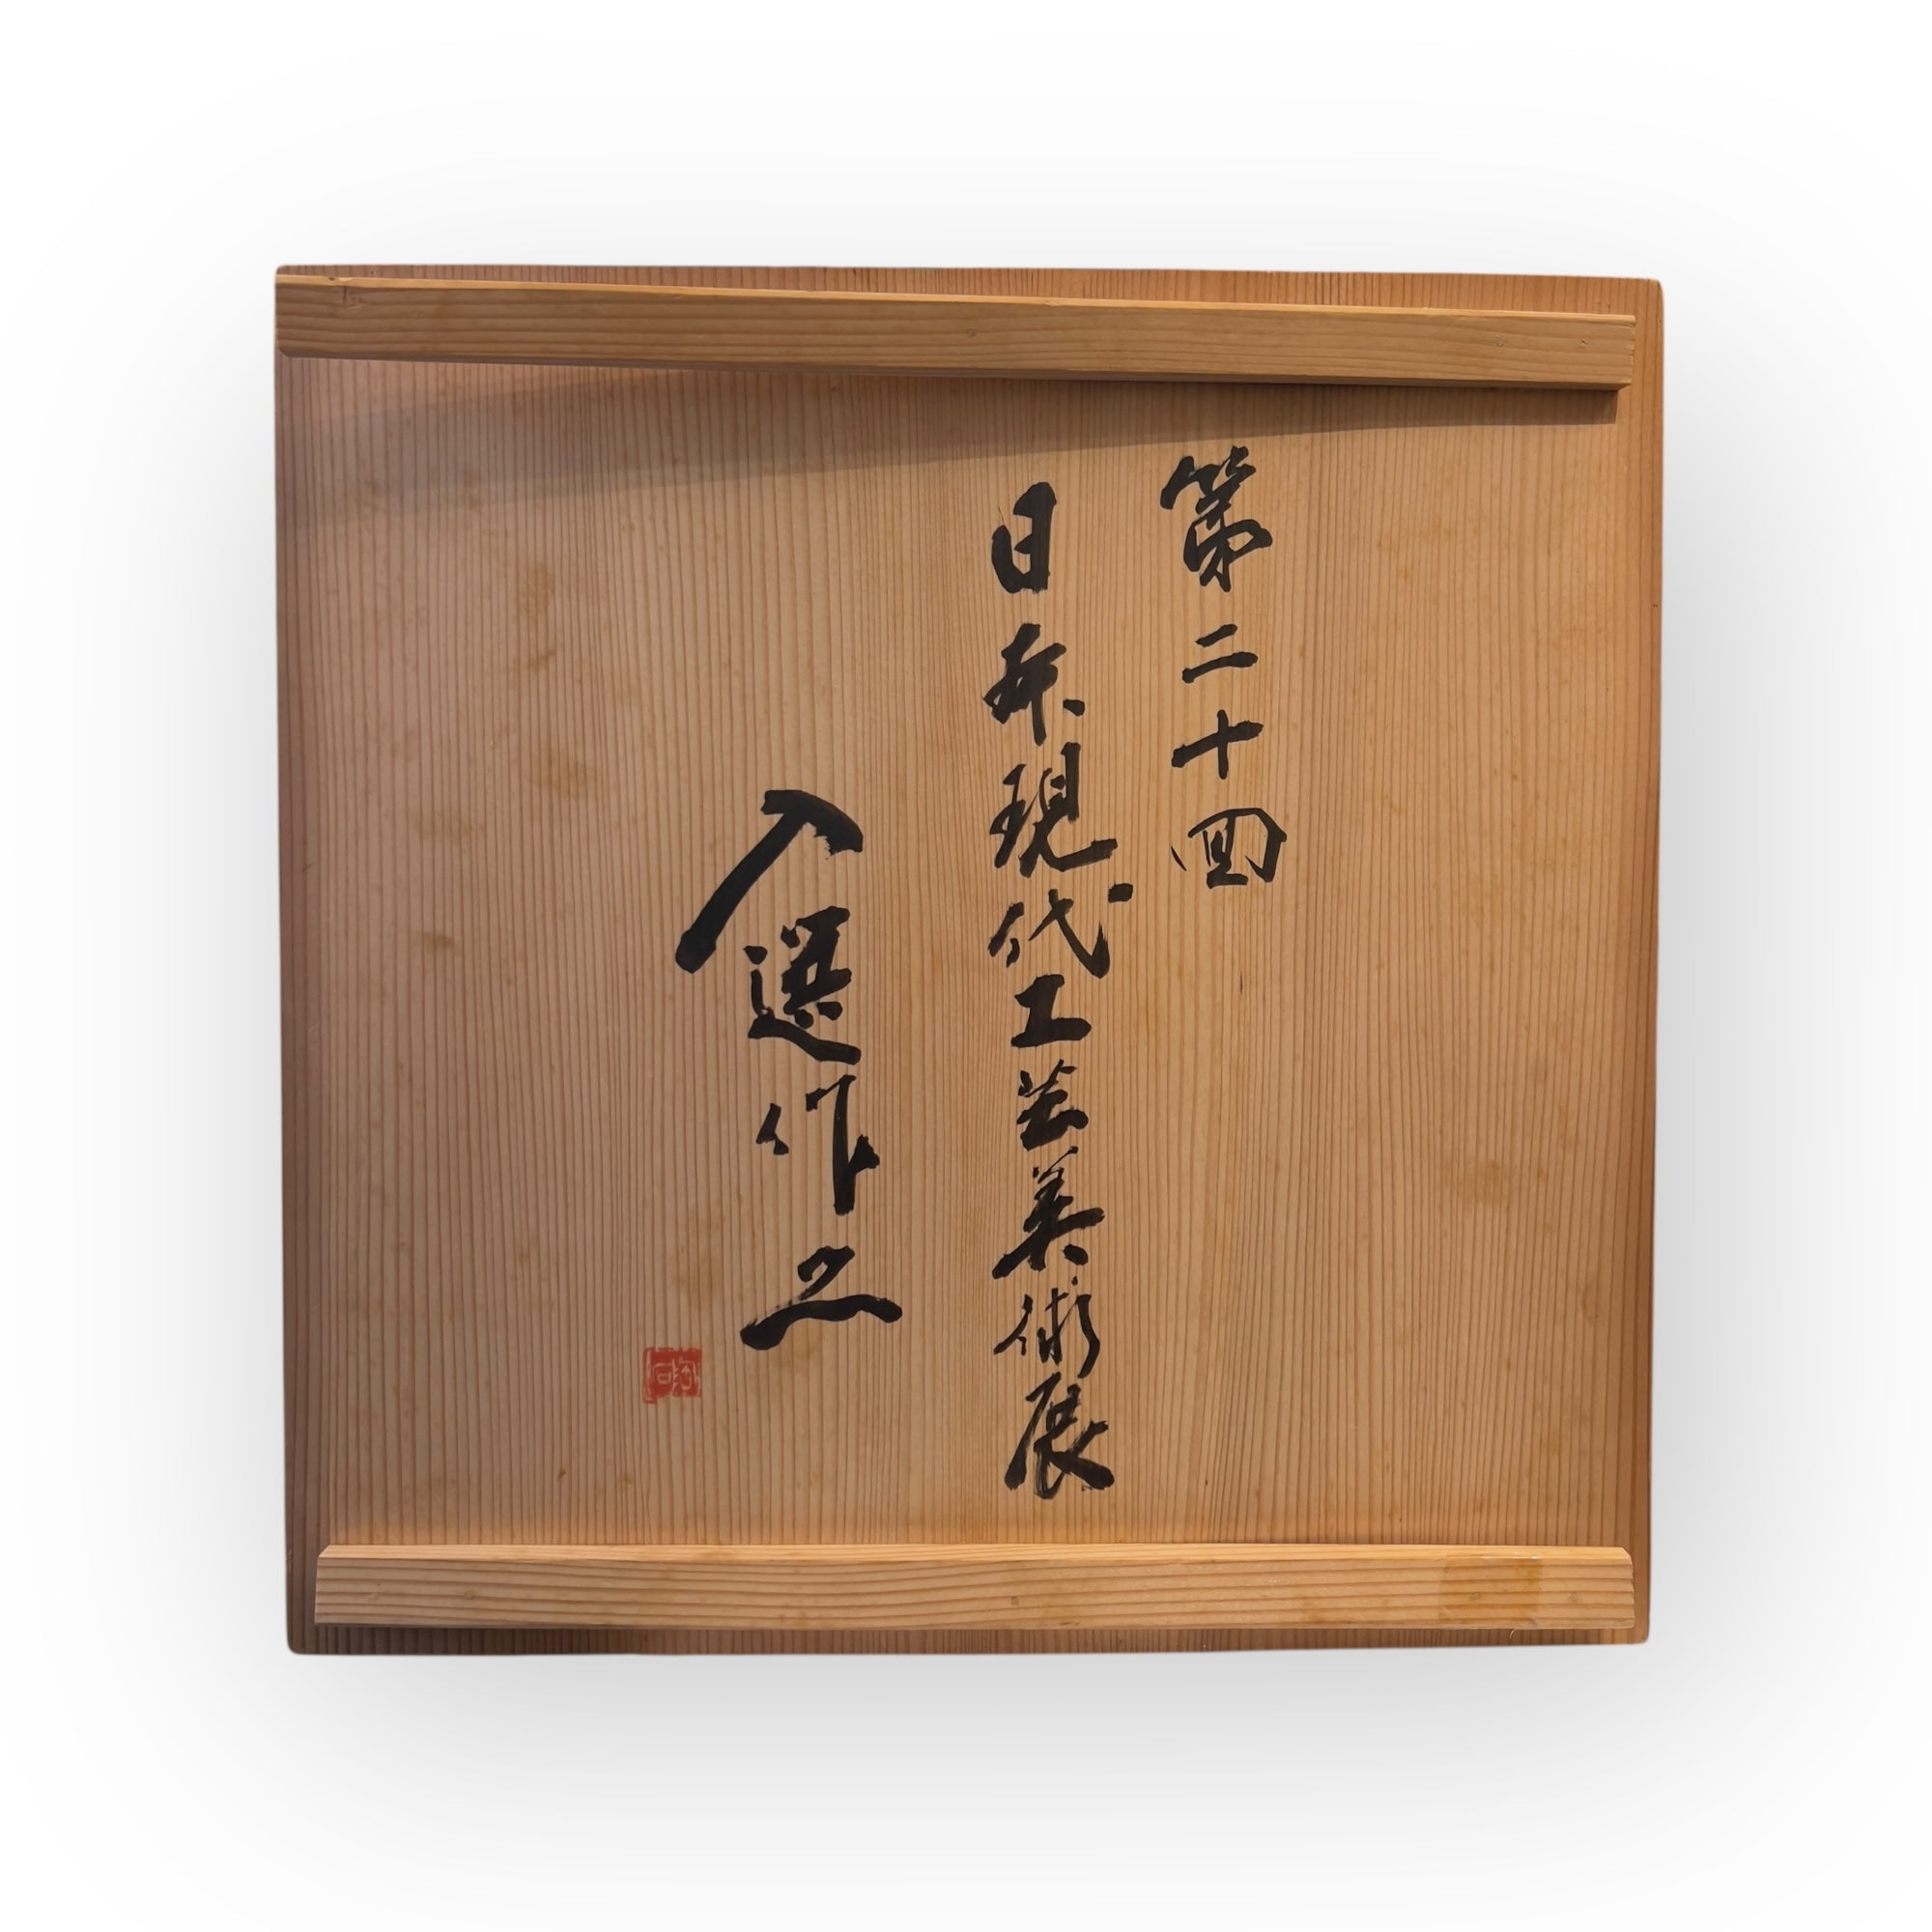 第二十回
日本現代工芸美術展
入選作之